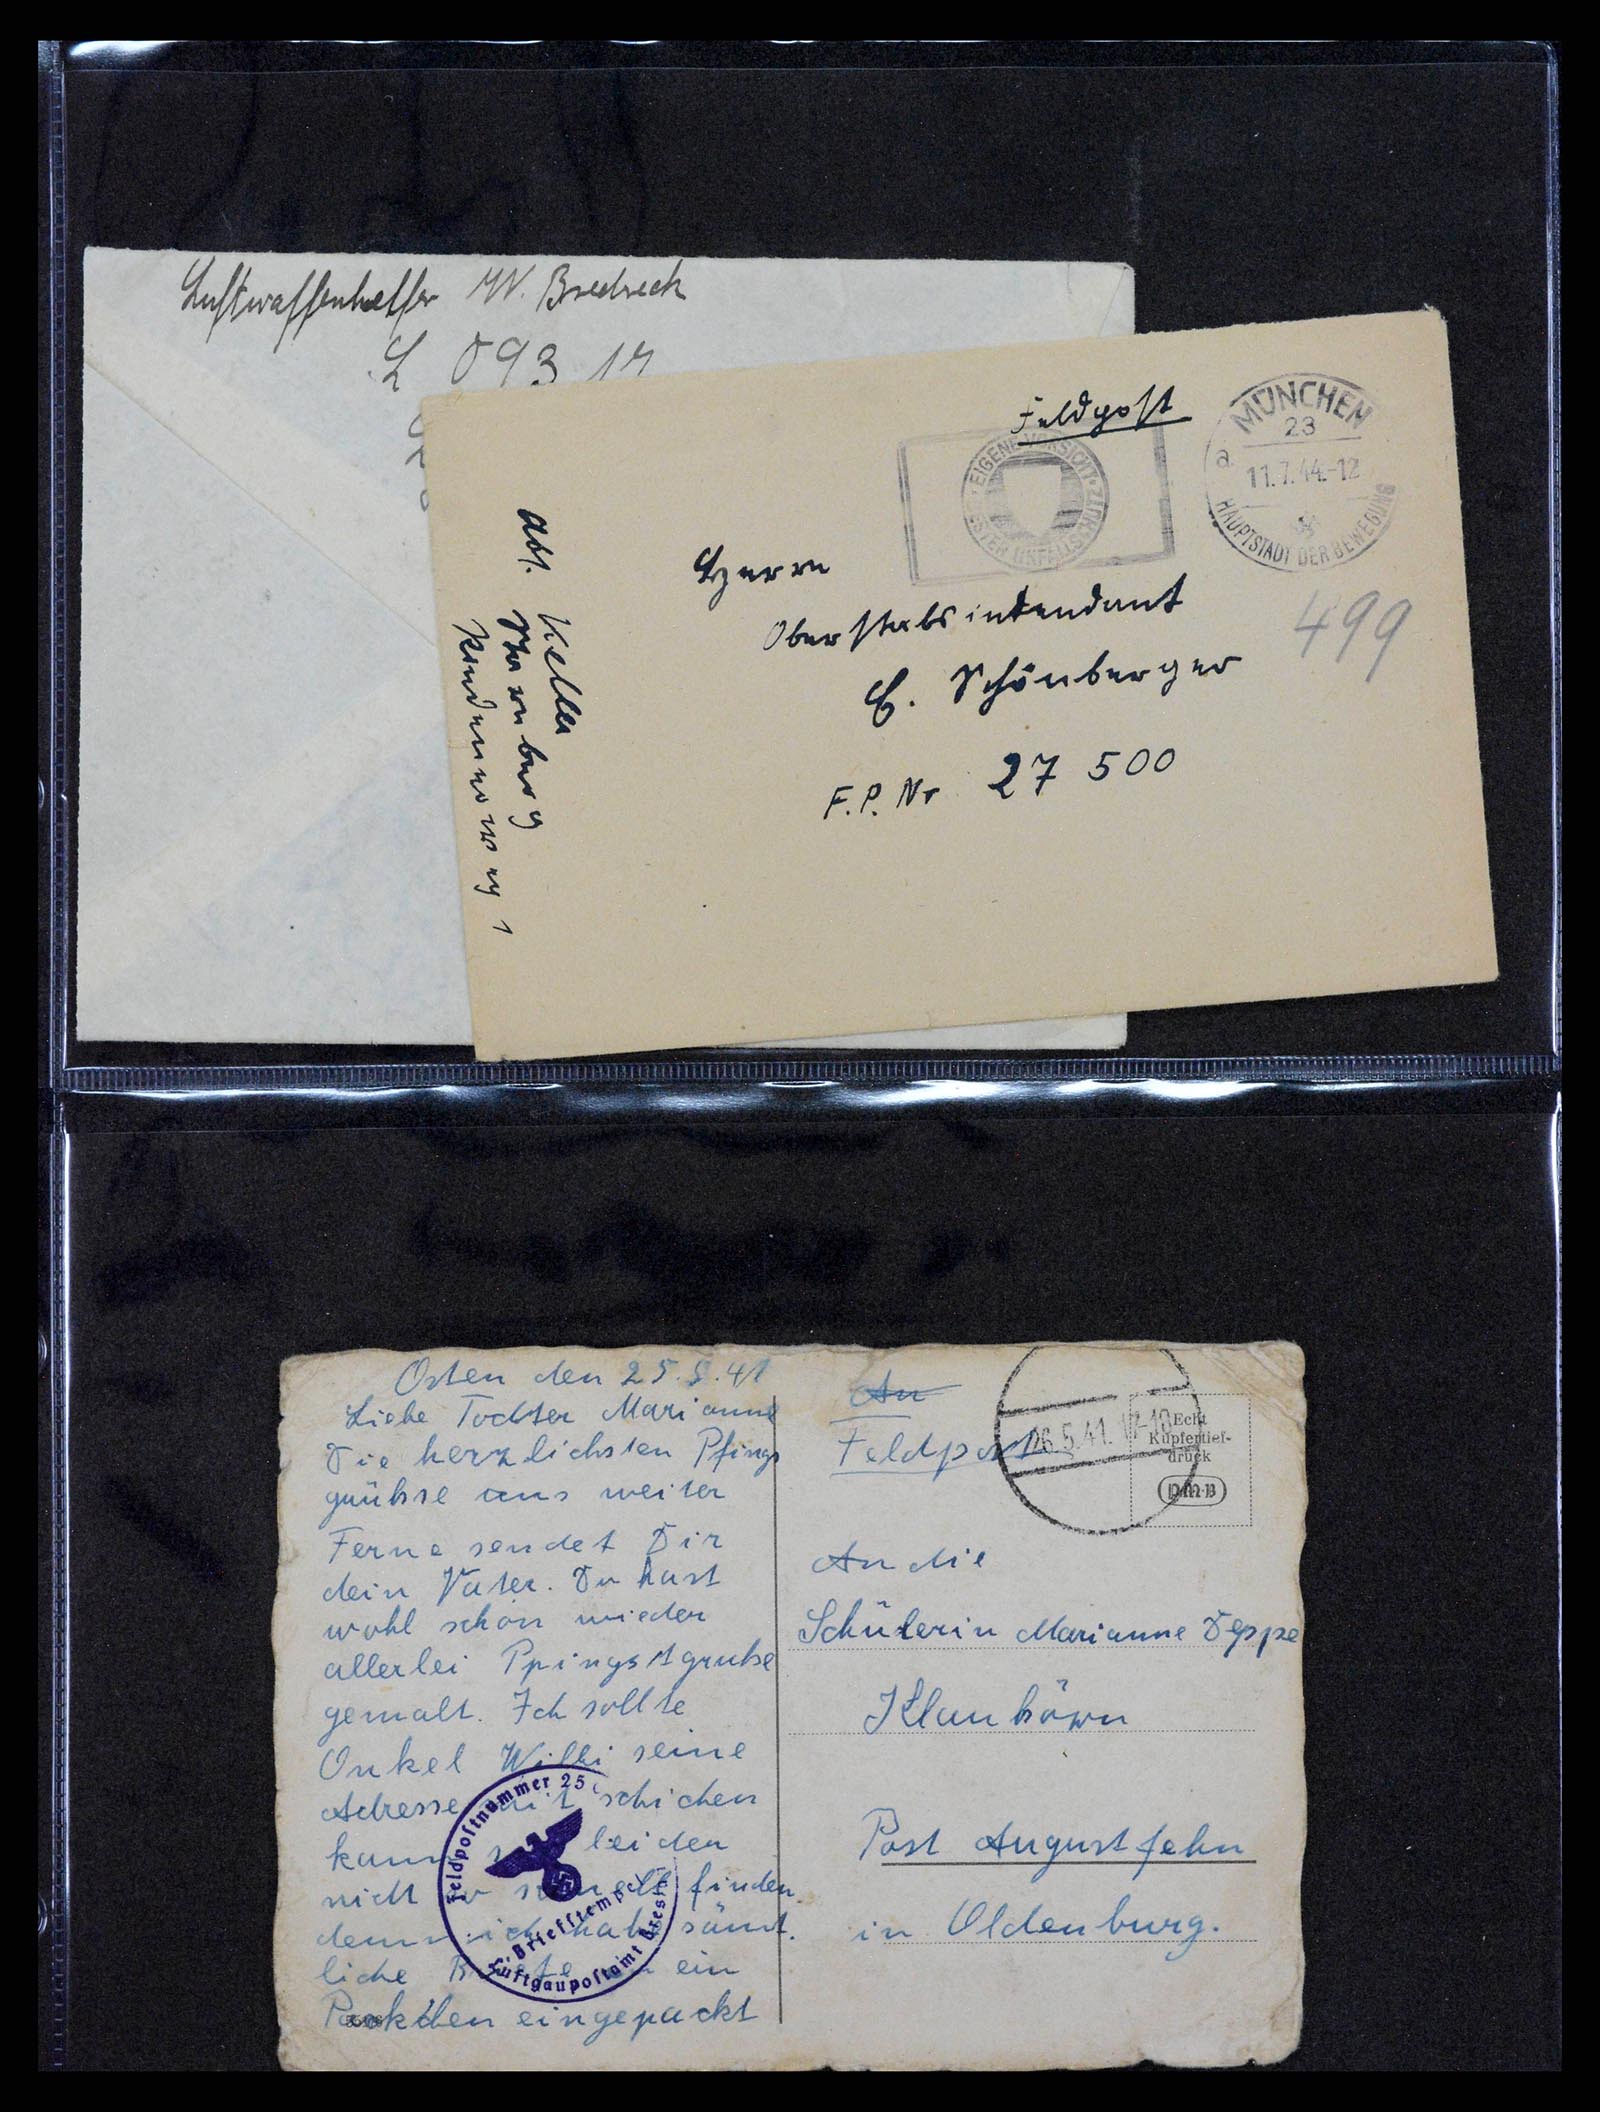 Luftwaffenhelfer W. Bredreck
L 093 17
Feldpost
EIGENE VORSICHT
UNFALLS
MÜNCHEN
23
a
11.7.44.-12
HAUPTSTADT DER BEWEGUNG
Herrn
Oberstabsintendant
E. Schönberger
F.P. Nr 27 500
499
Abs. Keller
Starnberg
1
Osten den 25.5.41
Liebe Tochter Marianne
Die herzlichsten Pfings
grühse aus weiter
Ferne sendet Dir
dein Vater. Du hast
wohl schon wieder
allerlei Ppingstgruhse
gemalt. Ich sollte
Onkel Willi seine
Adresse mit schicken
kann leider
nicht so schnell finden
denn ich habe sämt.
liche Briefe ein
Packchen eingepackt
Feldpostnummer 25
Briefstempel
Luftgaupostamt
An
Feldpost
26.5.41.17-18
Echt
Kupfertief-
druck
An die
Schülerin Marianne Deppe
Klauhörn
Post Augustfehn
in Oldenburg.